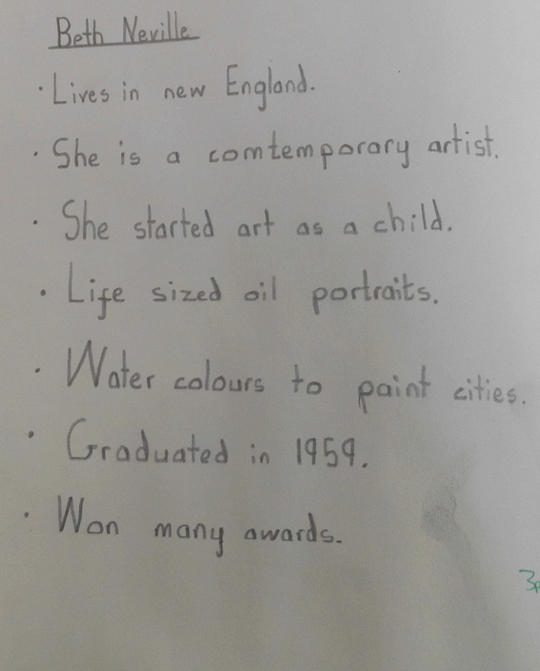 Beth Neville
· Lives in new England.
· She is a comtemporary artist.
· She started art as a child.
· Life sized oil portraits.
· Water colours to paint cities.
· Graduated in 1959.
· Won many awards.